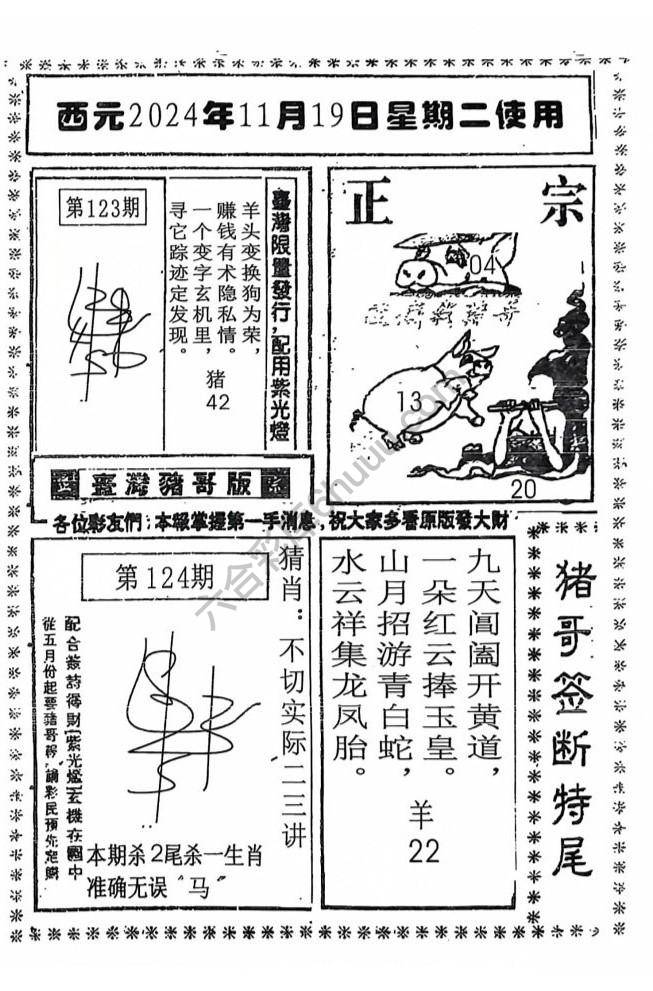 西元2024年11月19日星期二使用
第123期
臺灣限量發行,配用紫光燈
羊头变换狗为荣,
赚钱有术隐私情。
一个变字玄机里,
寻它踪迹定发现。
猪
42
正宗
04
13
20
臺灣豬哥版
各位彩友們:本報掌握第一手消息,祝大家多看原版發大財
第124期
猜肖:不切实际二三讲
配合签詩得財(紫光燈)玄機在圖中
從五月份起要豬哥報,請彩民預先定購
本期杀2尾杀一生肖
准确无误"马"
九天阊阖开黄道,
一朵红云捧玉皇。
山月招游青白蛇,
水云祥集龙凤胎。
羊
22
猪哥签断特尾